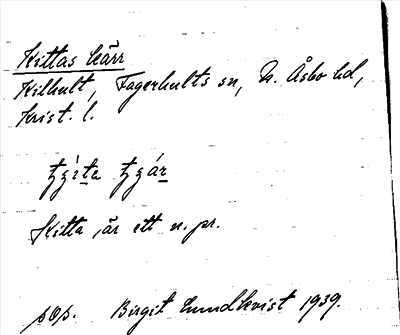 Kittas kärr
Kilhult, Fagerhults sn, N. Åsbo hd,
Krist. l.
Kitta är ett n. pr.
sop. Birgit Lundkvist 1939.